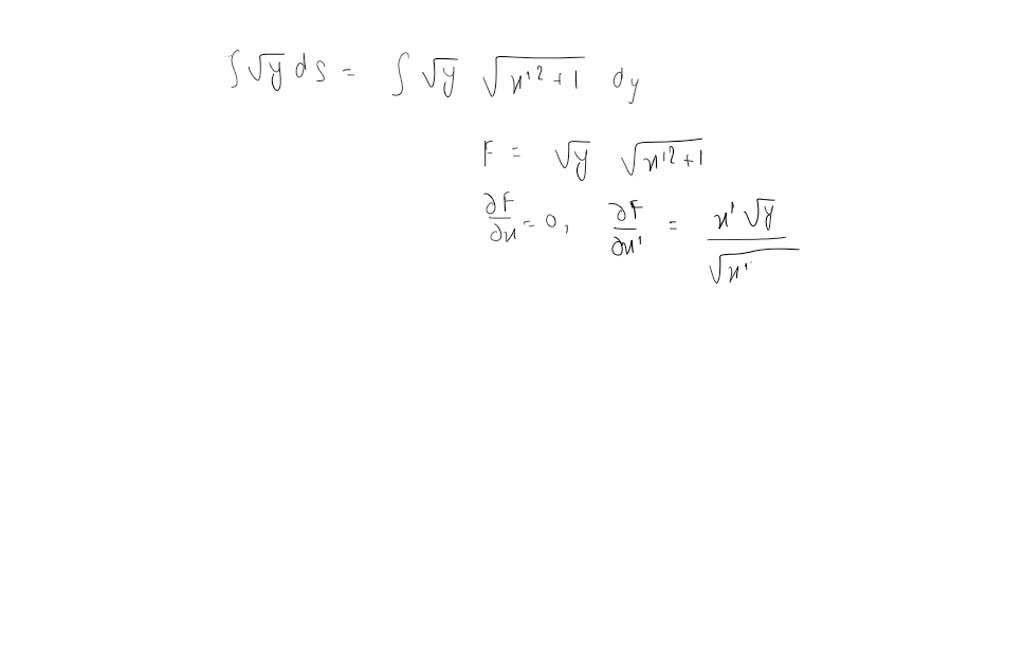 ∫√y ds = ∫ √y √(x'² + 1) dy
F = √y √(x'² + 1)
∂F/∂x = 0, ∂F/∂x' = x'√y / √x'